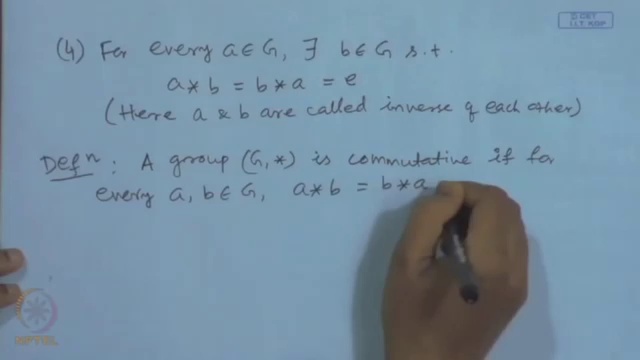 © CET
I.I.T. KGP
(4) For every a ∈ G, ∃ b ∈ G s.t.
a * b = b * a = e
(Here a & b are called inverse of each other)
Defⁿ: A group (G, *) is commutative if for
every a, b ∈ G, a * b = b * a
NPTEL